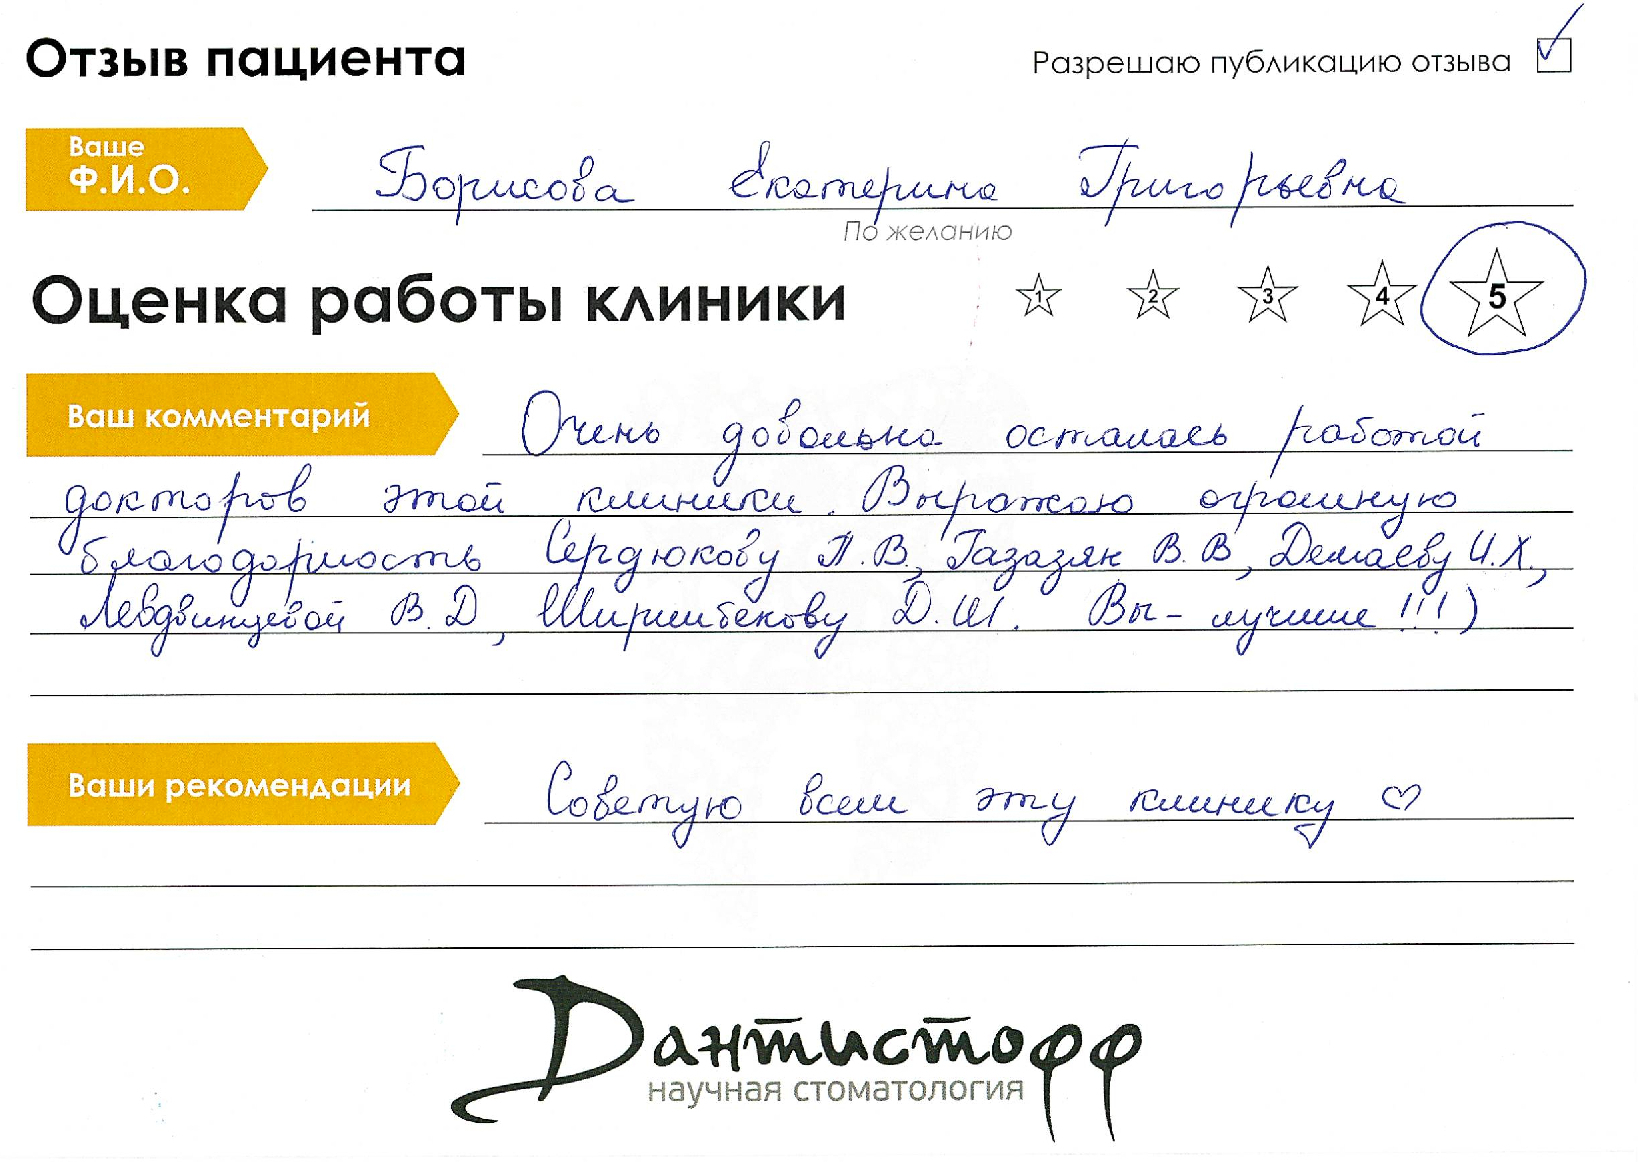 Отзыв пациента
Разрешаю публикацию отзыва
Ваше
Ф.И.О.
Борисова Екатерина Григорьевна
По желанию
Оценка работы клиники
1 2 3 4 5
Ваш комментарий
Очень довольна осталась работой
докторов этой клиники. Выражаю огромную
благодарность Сердюкову П.В., Газазян В.В, Демаеву И.Х.,
Левдвинцевой В.Д, Ширимбекову Д.Ш. Вы - лучшие!!!)
Ваши рекомендации
Советую всем эту клинику ♡
Дантистофф
научная стоматология